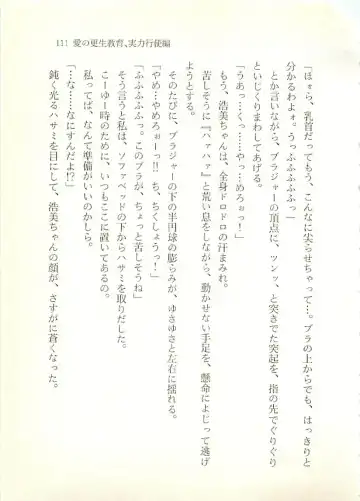 111 愛の更生教育、実力行使編
「ほぅら、乳首だってもう、こんなに尖らせちゃって…。ブラの上からでも、はっきりと
分かるわよォ。うっふふふふふっ」
とか言いながら、ブラジャーの頂点に、ツンッ、と突きでた突起を、指の先でぐりぐり
といじくりまわしてあげる。
「うあっ…くっ……やっ……めろぉっ！」
もう、浩美ちゃんは、全身ドロドロの汗まみれ。
苦しそうに『ハァハァ』と荒い息をしながら、動かせない手足を、懸命によじって逃げ
ようとする。
そのたびに、ブラジャーの下の半円球の膨らみが、ゆさゆさと左右に揺れる。
「やめ…やめろォーっ!!　ち、ちくしょうっ！」
「ふふふふふっ。このブラが、ちょっと苦しそうね」
そう言うと私は、ソファベッドの下からハサミを取りだした。
こーゆー時のために、いつもここに置いてあるの。
私ってば、なんて準備がいいのかしら。
「…な……なにすんだよ!?」
鈍く光るハサミを目にして、浩美ちゃんの顔が、さすがに蒼くなった。